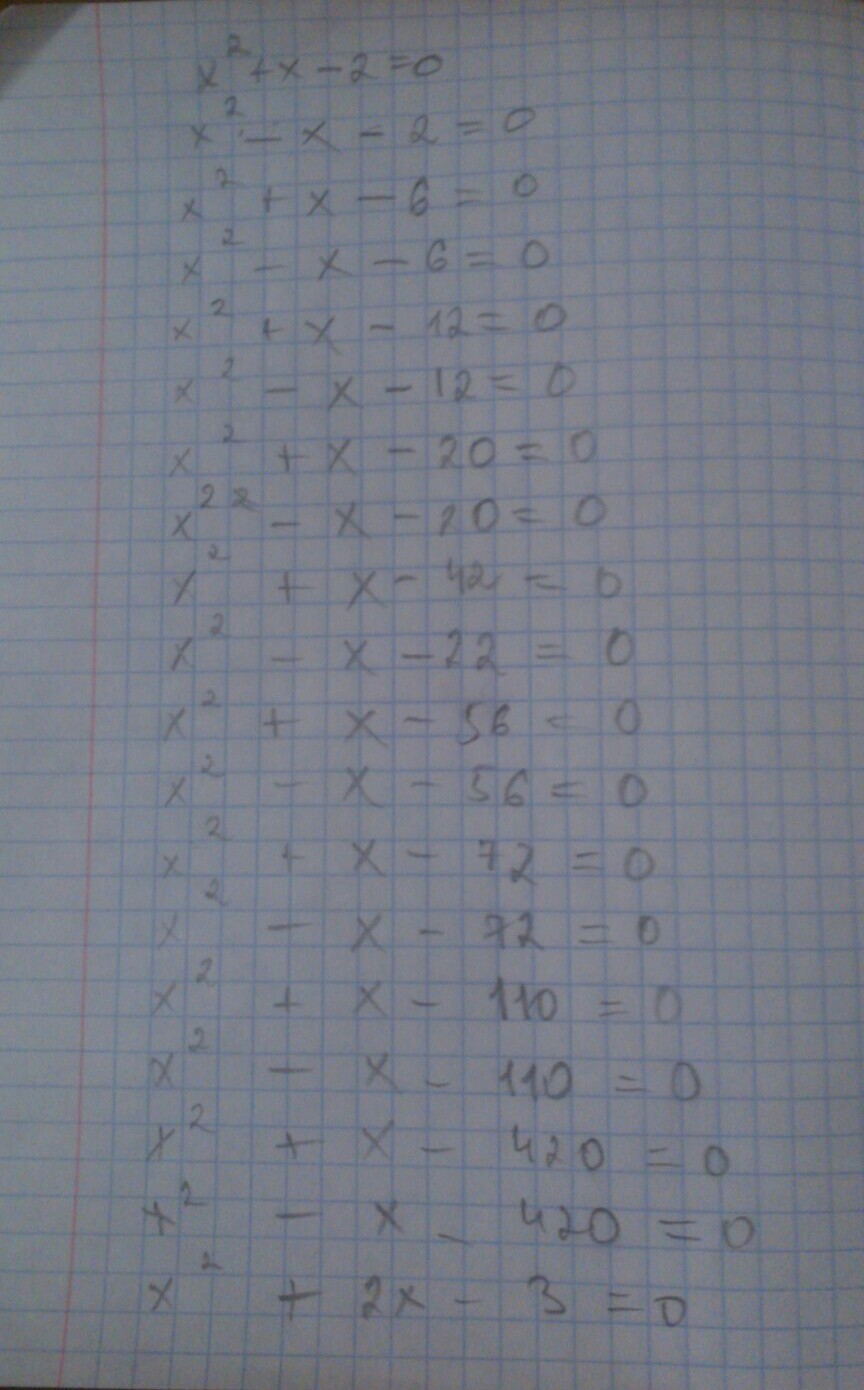 x² + x - 2 = 0
x² - x - 2 = 0
x² + x - 6 = 0
x² - x - 6 = 0
x² + x - 12 = 0
x² - x - 12 = 0
x² + x - 20 = 0
x²² - x - 20 = 0
x² + x - 42 = 0
x² - x - 22 = 0
x² + x - 56 = 0
x² - x - 56 = 0
x² + x - 72 = 0
x² - x - 72 = 0
x² + x - 110 = 0
x² - x - 110 = 0
x² + x - 420 = 0
x² - x - 420 = 0
x² + 2x - 3 = 0